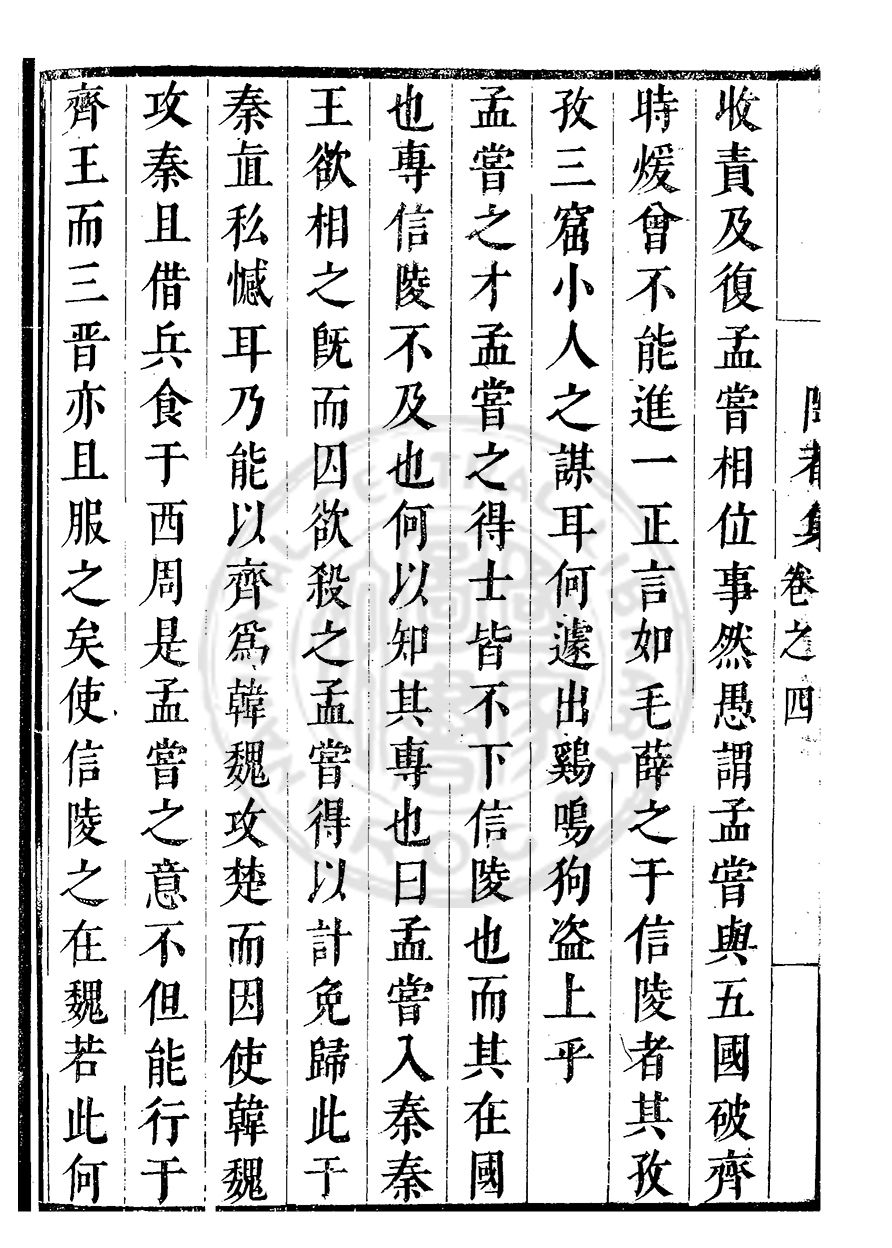 卷之四
收責及復孟嘗相位事然愚謂孟嘗與五國破齊
時煖曾不能進一正言如毛薛之于信陵者其孜
孜三窟小人之謀耳何遽出鷄鳴狗盗上乎
孟嘗之才孟嘗之得士皆不下信陵也而其在國
也專信陵不及也何以知其專也曰孟嘗入秦秦
王欲相之旣而囚欲殺之孟嘗得以計免歸此于
秦直私憾耳乃能以齊爲韓魏攻楚而因使韓魏
攻秦且借兵食于西周是孟嘗之意不但能行于
齊王而三晋亦且服之矣使信陵之在魏若此何